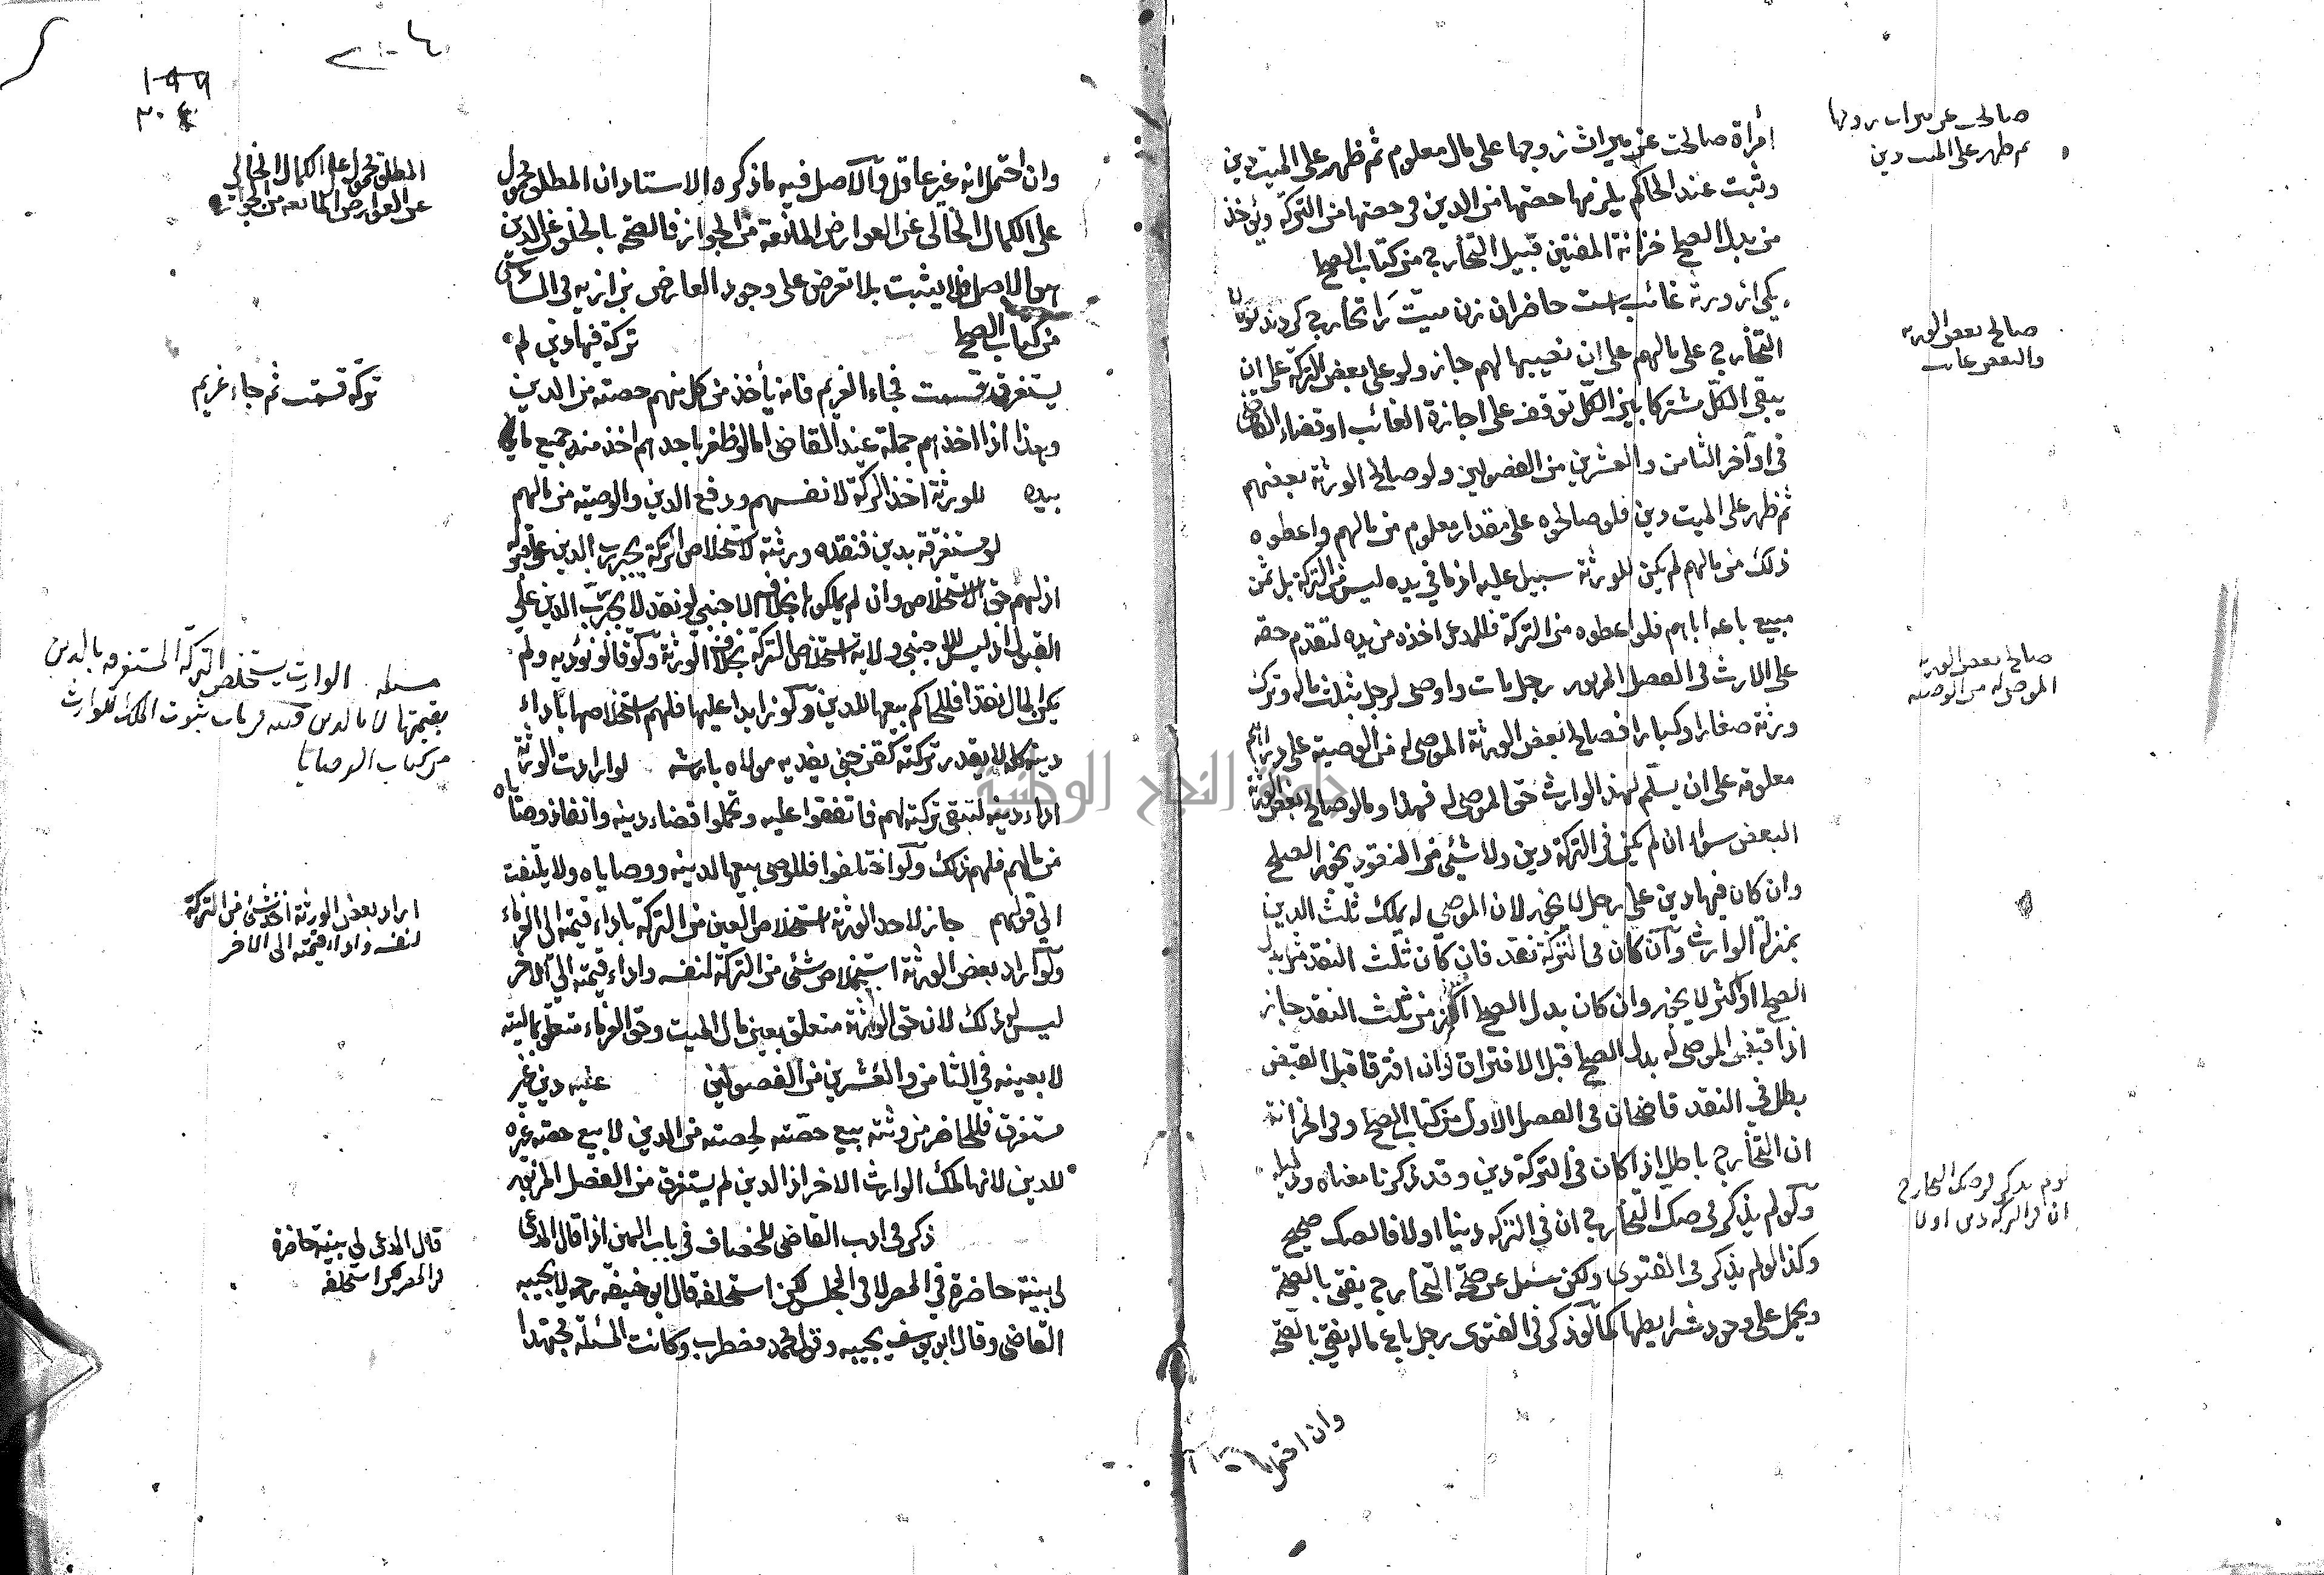 أمرأة صالحت عن ميراث زوجها على مال معلوم ثم ظهر على الميت دين
وثبت عند الحاكم يلزمها حصتها من الدين في حصتها من التركة ويؤخذ
من بدل الصلح خزانة المفتين قبيل التخارج من كتاب الصلح
يكى از ورثه غائب است حاضران زن ميت را تخارج كردند لو كان
التخارج على مالهم على ان نصيبها لهم جاز ولو على بعض التركة على ان
يبقى الكل مشتركا بين الكل توقف على اجازة الغائب او قضاء القاضي
في اواخر الثامن والعشرين من الفصولين ولو صالح الورثة بعضهم
ثم ظهر على الميت دين فلو صالحوه على مقدار معلوم من مالهم واعطوه
ذلك من مالهم لم يكن للورثة سبيل عليه اذ ما في يده ليس من التركة بل ثمن
مبيع باعه اياهم فلو اعطوه من التركة فللمدعى اخذه من يده لتقدم حقه
على الارث في الفصل المزبور رجل مات واوصى لرجل بثلث ماله وترك
ورثة صغارا وكبارا فصالح بعض الورثة الموصى له من الوصية على دراهم
معلومة على ان يسلم لهذا الوارث حق الموصى له فهذا وما لو صالح بعض الورثة
البعض سواء ان لم يكن في التركة دين ولا شئى من النقود يجوز الصلح
وان كان فيها دين على رجل لا يجوز لان الموصى له يملك ثلث الدين
بمنزلة الوارث وان كان في التركة نقد فان كان ثلث النقد مثل بدل
الصلح او اكثر لا يجوز وان كان بدل الصلح اكثر من ثلث النقد جاز
اذا قبض الموصى له بدل الصلح قبل الافتراق وان افترقا قبل القبض
بطل في النقد قاضيخان في الفصل الاول من كتاب الصلح وفي الخزانة
ان التخارج باطل اذا كان في التركة دين وقد ذكرنا معناه ودليله
ولو لم يذكر في صك التخارج ان في التركة دينا اولا فالصك صحيح
وكذا لو لم يذكر في الفتوى ولكن سئل عن صحة التخارج يفتى بالصحة
ويحمل على وجود شرايطها كما لو ذكر في الفتوى رجل باع ماله يفتى بالصحة
وان احتمل
صالحت عن ميراث زوجها
ثم ظهر على الميت دين
صالح بعض الورثة
والبعض غائب
صالح بعض الورثة
الموصى له من الوصية
لو لم يذكر في صك التخارج
ان في التركة دين اولا
وان احتمل انه غير عاقل والاصل فيه ما ذكره الاستاد ان المطلق محمول
على الكمال الخالى عن العوارض المانعة من الجواز فالصحة بالخلو عن الدين
هو الاصل فلا يثبت بلا تعرض على وجود العارض بزازيه في السادس
من كتاب الصلح تركة فيها دين لم
يستغرق قسمت فجاء الغريم فانه يأخذ من كل منهم حصته من الدين
وهذا اذا اخذهم جملة عند القاضى اما لو ظفر باحدهم اخذ منه جميع ما في
بيده للورثة اخذ التركة لانفسهم ودفع الدين والوصية من مالهم
لو مستغرقة بدين فنقده ورثته لاستخلاص التركة يجبر رب الدين على قبوله
اذ لهم حق الاستخلاص وان لم يملكوها بخلاف الاجنبي لو نقد لا يجبر رب الدين على
القبول اذ ليس للاجنبي ولاية استخلاص التركة بخلاف الورثة ولو قالوا نؤديه ولم
يكن المال نقدا فللحاكم بيعها للدين ولو زايدا عليها فلهم استخلاصها باداء
دينه كله لا بقدر تركته كقن جنى يفديه مولاه بارشه لو ارادت الورثة
اداء دينه لتبقى تركته لهم فاتفقوا عليه وتحملوا قضاء دينه وانفاذ وصاياه
من مالهم فلهم ذلك ولو اختلفوا فللوصى بيعها لدينه ووصاياه ولا يلتفت
الى قولهم جاز لاحد الورثة استخلاص العين من التركة باداء قيمته الى الغرماء
ولو اراد بعض الورثة استخلاص شئى من التركة لنفسه واداء قيمته الى الاخر
ليس له ذلك لان حق الورثة متعلق بعين مال الميت وحق الغرماء متعلق بماليته
لا بعينه في الثامن والعشرين من الفصولين عليه دين غير
مستغرق فللحاضر من ورثته بيع حصته لحصته من الدين لا بيع حصة غيره
للدين لانها ملك الوارث الاخر اذ الدين لم يستغرق من الفصل المزبور
ذكر في ادب القاضى للخصاف في باب اليمين اذا قال المدعى
لى بينة حاضرة في المصر لا في المجلس لكن استحلفه قال ابو حنيفة رحمه لا يجيبه
القاضى وقال ابو يوسف يجيبه وقول محمد مضطرب وكانت المسئلة مجتهدا
المطلق محمول على الكمال الخالى
عن العوارض المانعة من الجواز
تركة قسمت ثم جاء غريم
مسئله الوارث يستخلص التركة المستغرقه بالدين
بقيمتها لا بالدين قنيه في باب ثبوت الملك للوارث
من كتاب الوصايا
اراد بعض الورثة اخذ شئى من التركة
لنفسه واداء قيمته الى الاخر
قال المدعى لى بينة حاضرة
في المصر لكن استحلفه
٣٠٤
جامعة النجاح الوطنية